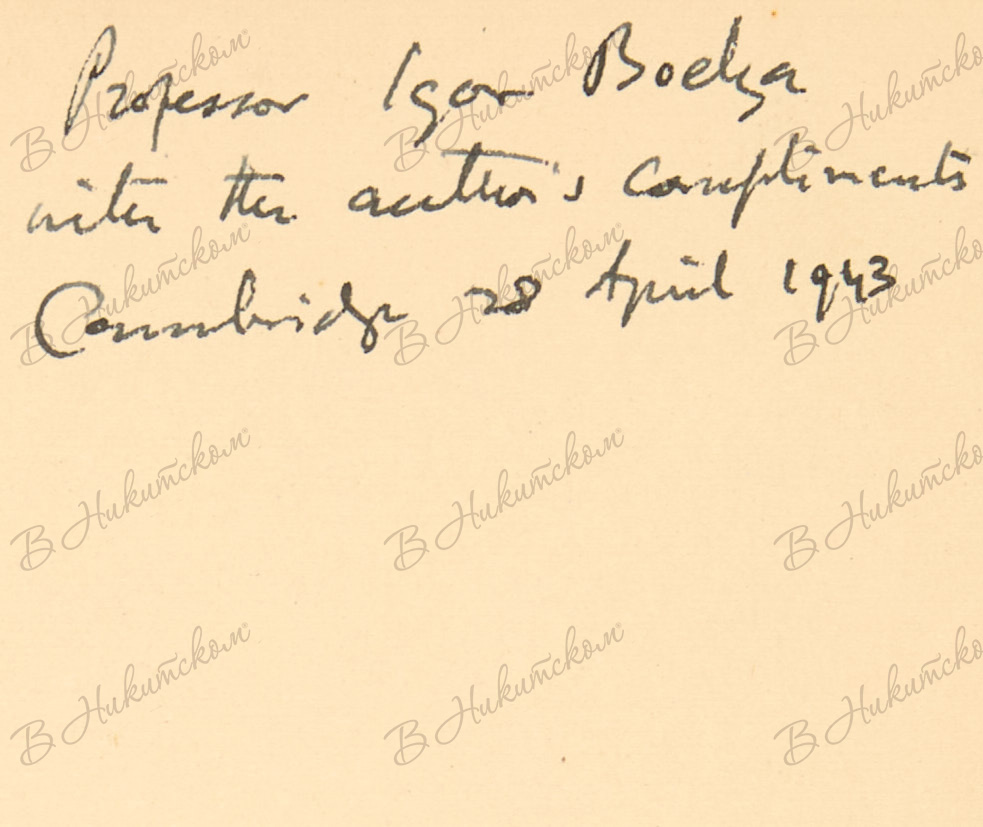 Professor Igor Boelza
with the author's compliments
Cambridge 28 April 1943
В Никитском
В Никитском
В Никитском
В Никитском
В Никитском
В Никитском
В Никитском
В Никитском
В Никитском
В Никитском
В Никитском
В Никитском